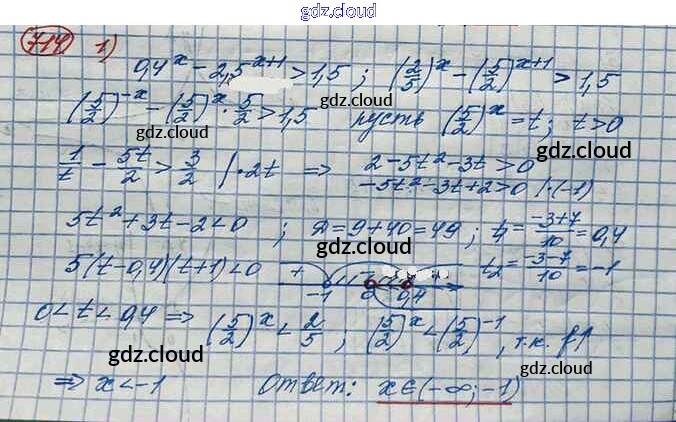 gdz.cloud
714 1)
0,4^x - 2,5^(x+1) > 1,5 ; (2/5)^x - (5/2)^(x+1) > 1,5
gdz.cloud
(5/2)^(-x) - (5/2)^x · 5/2 > 1,5 пусть (5/2)^x = t; t>0
gdz.cloud
gdz.cloud
1/t - 5t/2 > 3/2 | · 2t ⇒ 2-5t²-3t>0
gdz.cloud
-5t²-3t+2>0 | · (-1)
gdz.cloud
5t²+3t-2<0 ; D=9+40=49 ; t₁ = (-3+7)/10 = 0,4
gdz.cloud
5(t-0,4)(t+1)<0 + -1 0 0,4 t₂ = (-3-7)/10 = -1
0<t<0,4 ⇒ (5/2)^x < 2/5 ; (5/2)^x < (5/2)^(-1), т.к. f↑
gdz.cloud
gdz.cloud
⇒ x<-1 Ответ: x∈(-∞;-1)